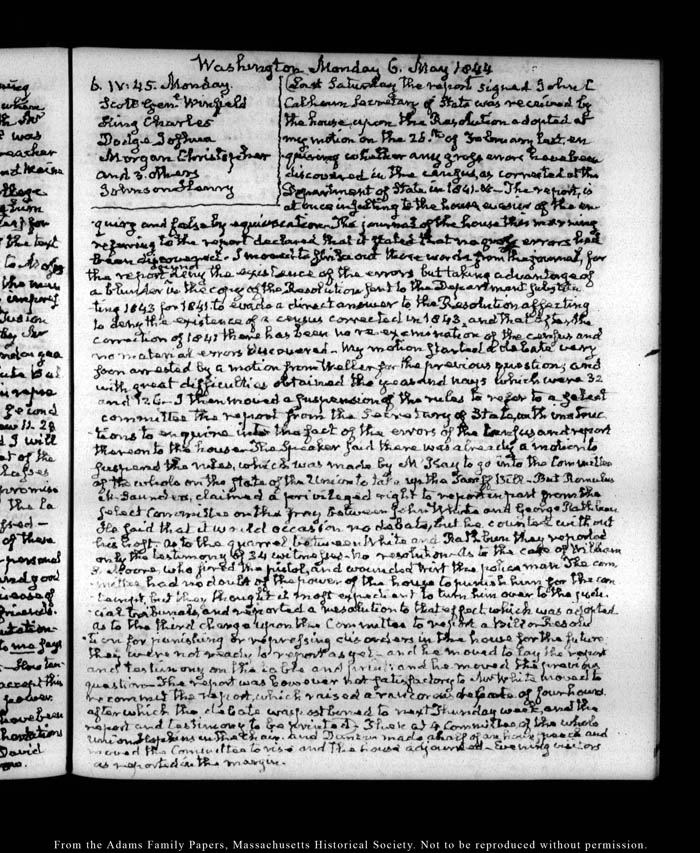 Washington Monday 6. May 1844
6. IV: 45. Monday.
Scott Genl. Winfield
King Charles
Dodge Joshua
Morgan Christopher
and 3. others
Johnson Henry
Last Saturday the report signed John C
Calhoun Secretary of State was received by
the house, upon the Resolution adopted at
my motion on the 26th. of February last, en
quiring whether any gross errors have been
discovered in the census as corrected at the
Department of State in 1841. The report, is
at once insulting to the house, evasive of the en
quiry and false by equivocation. The journal of the house this morning
referring to the report declared that it stated that no gross errors had
been discovered. I moved to strike out these words from the journal, for
the report did not deny the existence of the errors but taking advantage of
a blunder in the copy of the Resolution sent to the Department substitu
ting 1843 for 1841 to evade a direct answer to the Resolution affecting
to deny the existence of a census corrected in 1843, and that after the
correction of 1841 there has been no re-examination of the census and
no material errors discovered. My motion started a debate very
soon arrested by a motion from Weller for the previous question; and
with great difficulties obtained the yeas and nays which were 32
and 126. I then moved a suspension of the rules to refer to a select
committee the report from the Secretary of State, with instruc
tions to enquire into the fact of the errors of the Census and report
thereon to the house. The Speaker said there was already a motion to
suspend the rules, which was made by M'Kay to go into the Committee
of the whole on the state of the Union to take up the Tariff Bill. But Romulus
M. Saunders, claimed a privileged right to report in part from the
Select Committee on the fray between John White and George Rathbun
He said that it would occasion no debate, but he counted without
his host. As to the quarrel between White and Rathbun they reported
only the testimony of 34 witnesses. no resolution. As to the case of William
S. Moore, who fired the pistol, and wounded Wirt the police man The com
mittee had no doubt of the power of the house to punish him for the con
tempt, but they thought it most expedient to turn him over to the judi
cial tribunals, and reported a resolution to that effect which was adopted.
as to the third charge upon the Committee to report a Bill or Resolu
tion for punishing or repressing disorders in the house for the future
they were not ready to report as yet. and he moved to lay the report
and testimony on the table and print; and he moved the previous
question. The report was however not satisfactory to Mr White moved to
recommit the report, which raised a rancorous debate of four hours
after which the debate was postponed to next Thursday week, and the
report and testimony to be printed. There was a Committee of the whole
Union Hopkins in the Chair. and Duncan made a half of an hour speech and
moved the Committee to rise and the house adjourned. Evening visitors
as reported in the margin.
From the Adams Family Papers, Massachusetts Historical Society. Not to be reproduced without permission.